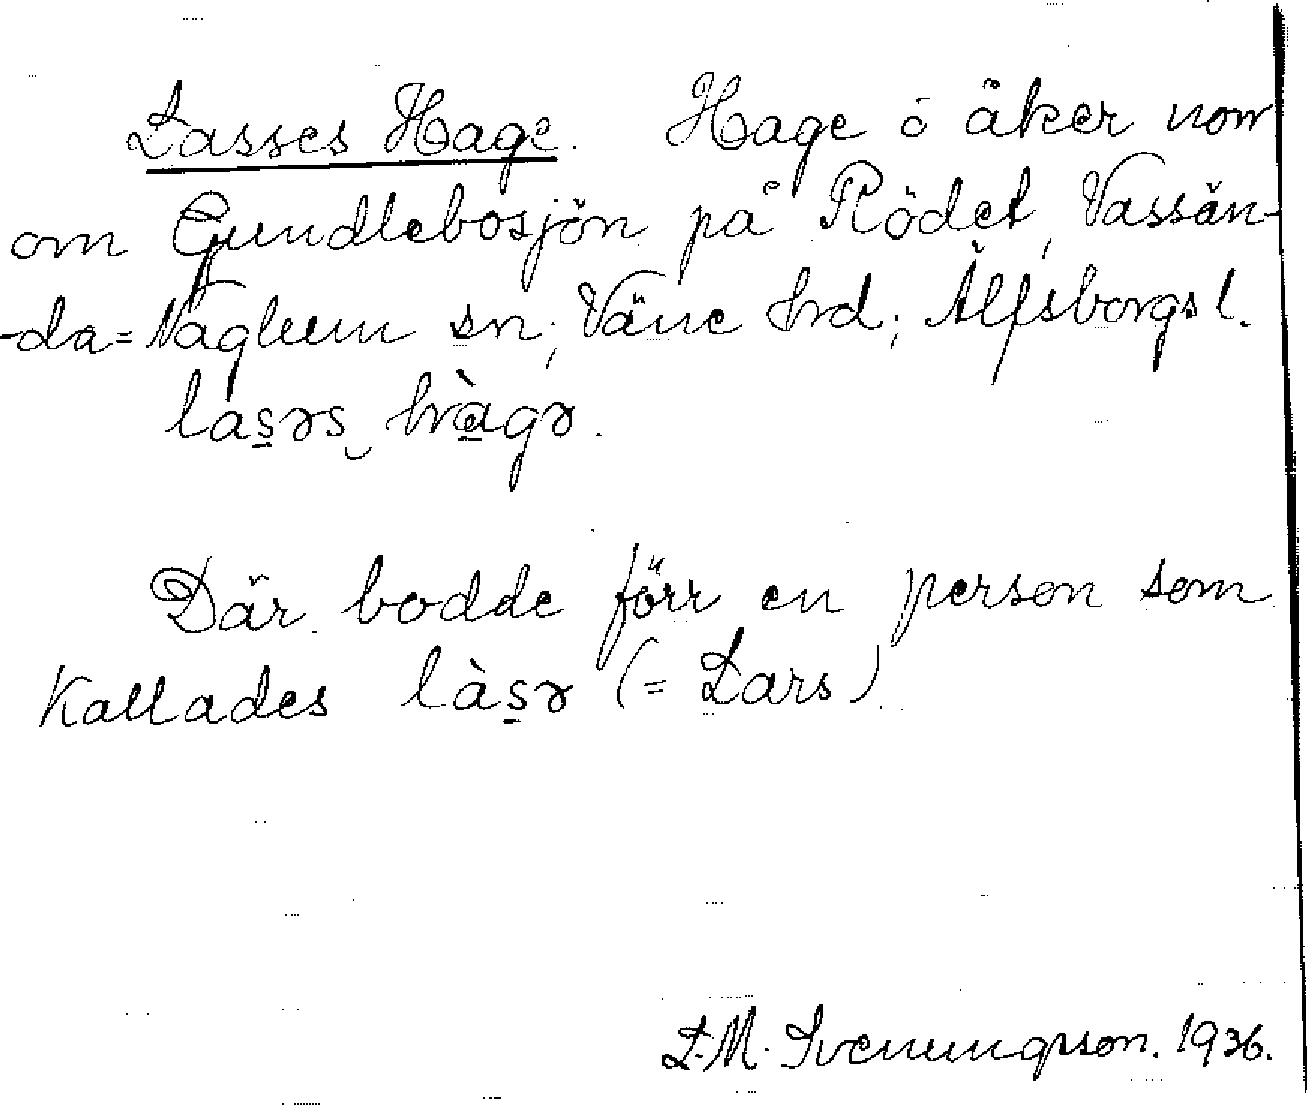 Lasses Hage. Hage o åker norr
om Gundlebosjön på Rödet, Vassän-
-da=Naglum sn; Väne hrd; Älfsborgs l.
las̠əs hà̠gə.
Där bodde förr en person som
kallades làs̠ə (= Lars)
L.M. Svenungsson. 1936.